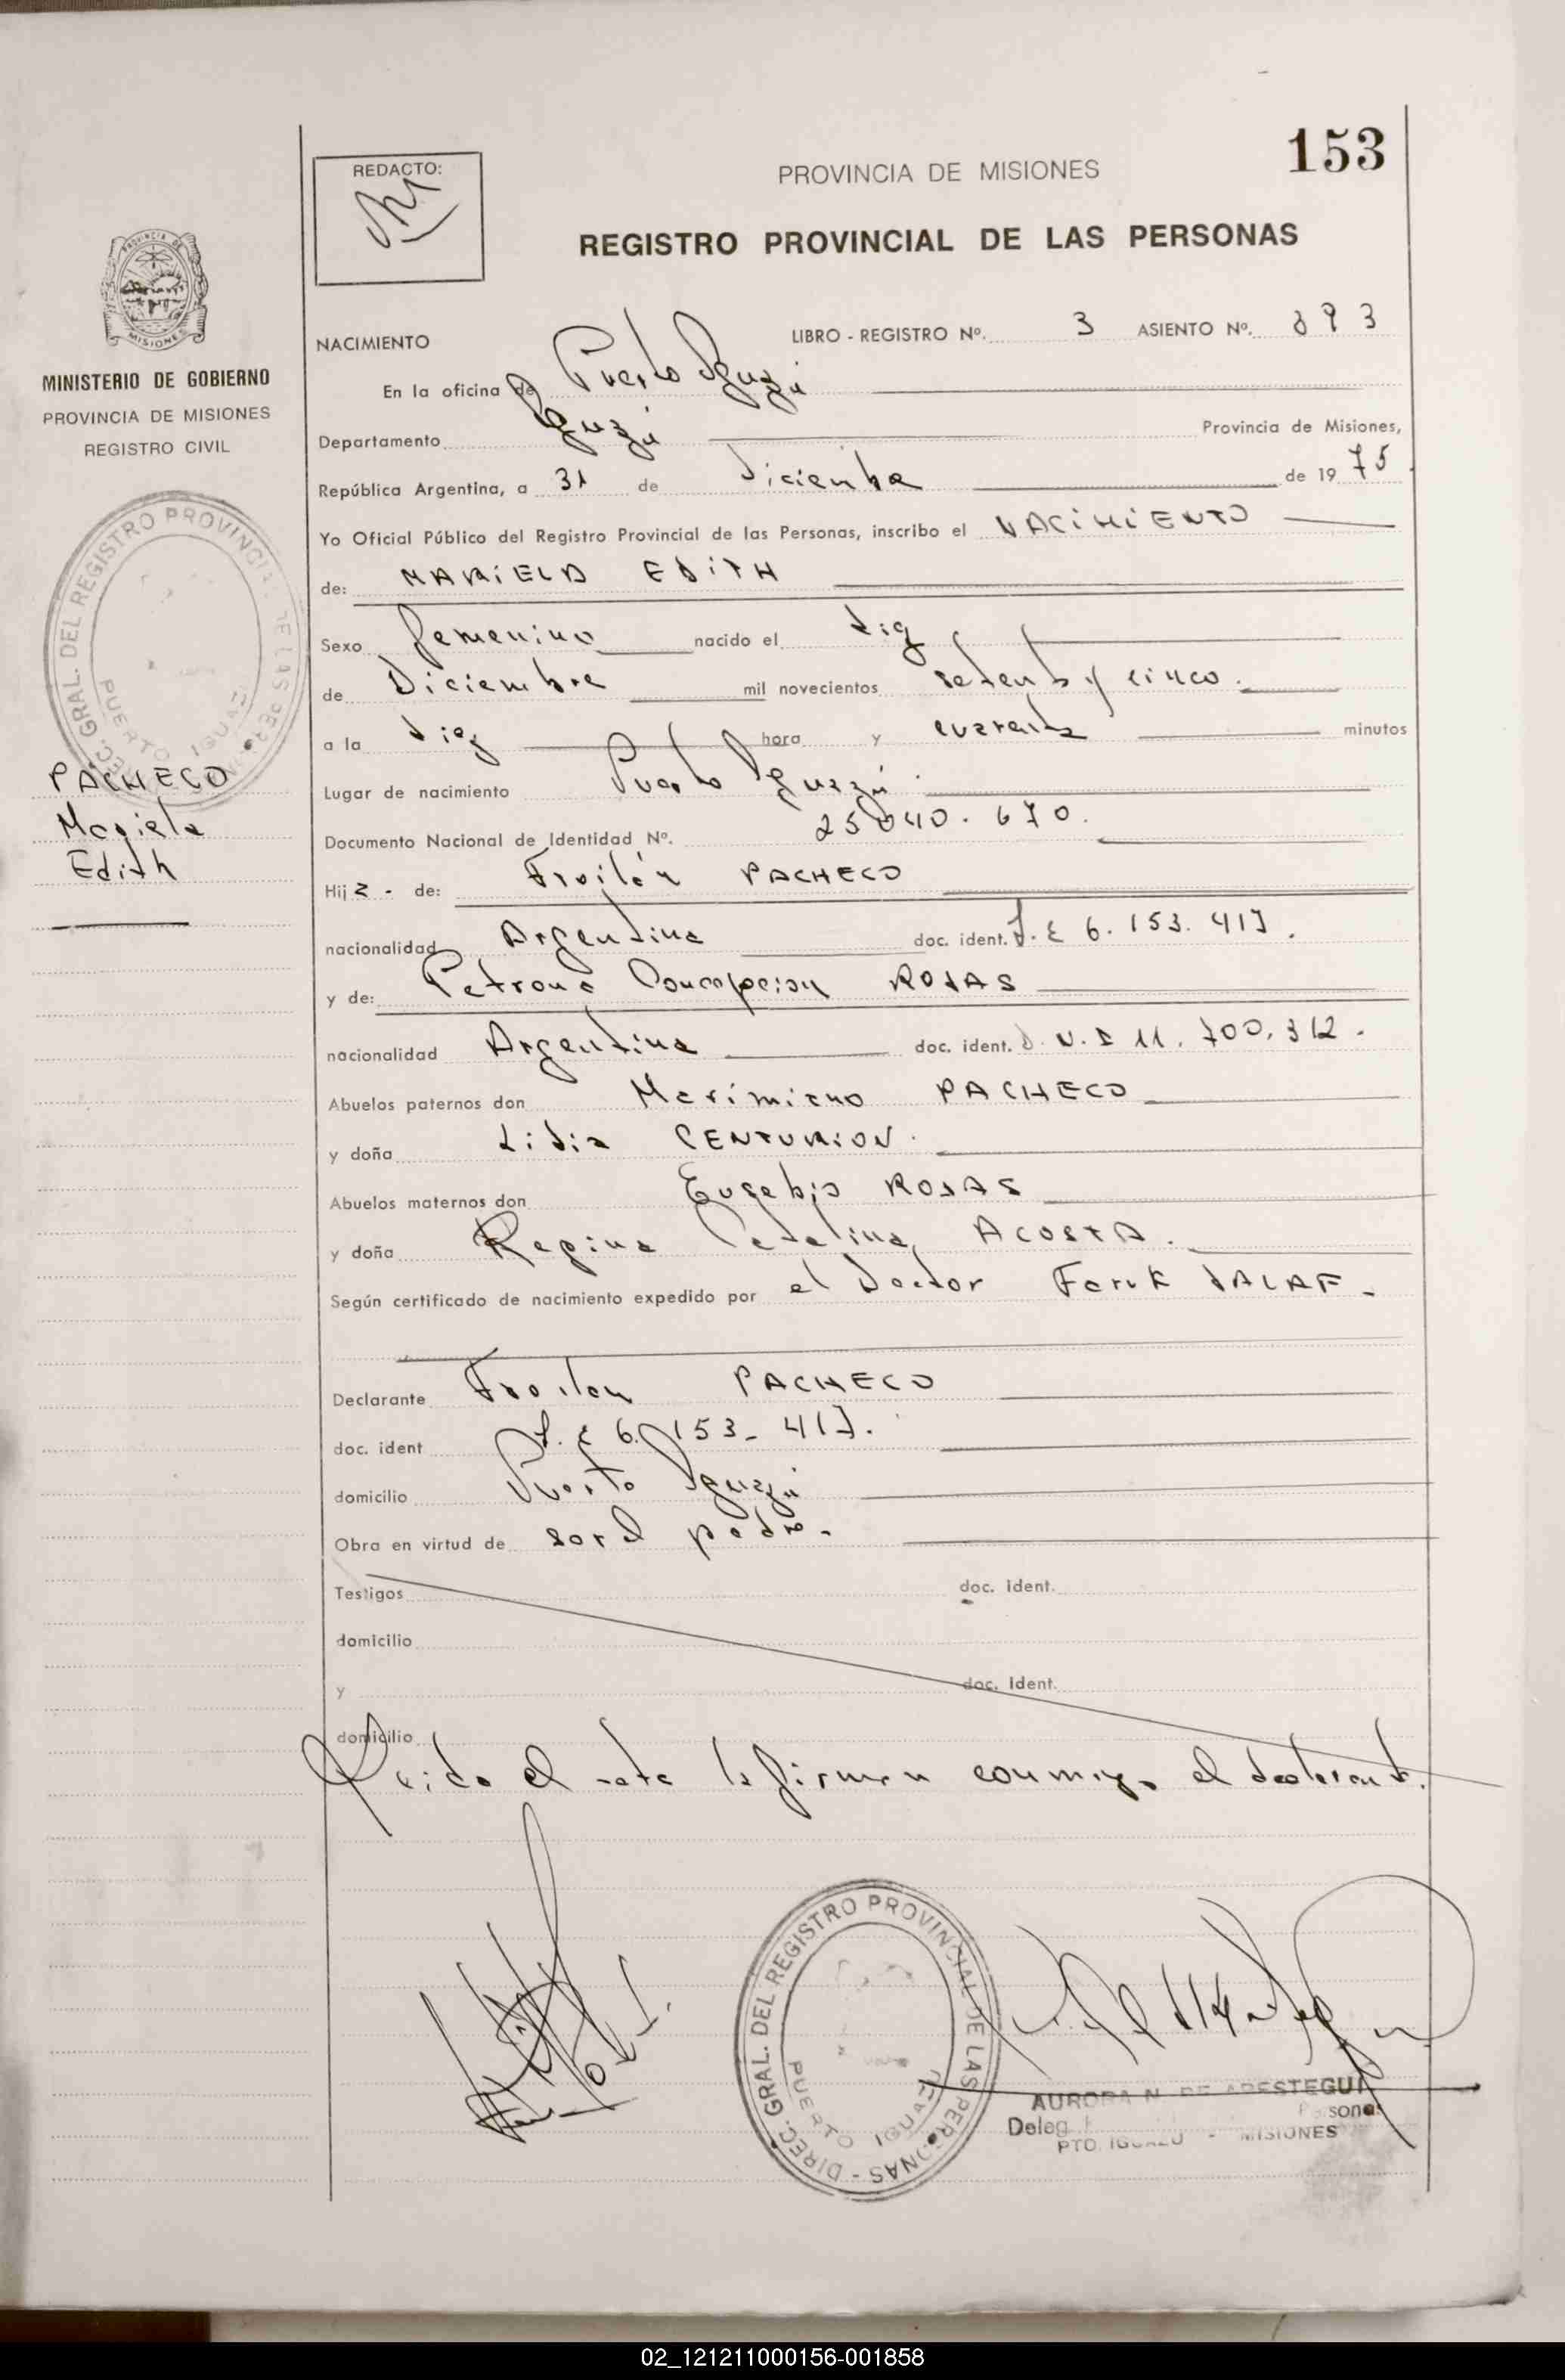 153
REDACTO:
PROVINCIA DE MISIONES
REGISTRO PROVINCIAL DE LAS PERSONAS
MISIONES
MINISTERIO DE GOBIERNO
PROVINCIA DE MISIONES
REGISTRO CIVIL
DIREC. GRAL. DEL REGISTRO PROVINCIAL DE LAS PERSONAS
PUERTO IGUAZU
PACHECO
Mariela
Edith
NACIMIENTO
LIBRO - REGISTRO Nº. 3 ASIENTO Nº. 893
En la oficina de Puerto Iguazú
Departamento Iguazú Provincia de Misiones,
República Argentina, a 31 de Diciembre de 1975
Yo Oficial Público del Registro Provincial de las Personas, inscribo el NACIMIENTO
de: MARIELA EDITH
Sexo femenino nacido el diez
de Diciembre mil novecientos setenta y cinco.
a la diez hora y cuarenta minutos
Lugar de nacimiento Puerto Iguazú.
Documento Nacional de Identidad Nº. 25040.670.
Hija - de: Froilán PACHECO
nacionalidad Argentina doc. ident. L.E 6.153.417.
y de: Petrona Concepcion ROJAS
nacionalidad Argentina doc. ident. D.N.I 11.700.312.
Abuelos paternos don Maximiano PACHECO
y doña Lidia CENTURION.
Abuelos maternos don Eusebio ROJAS
y doña Regina Catalina ACOSTA.
Según certificado de nacimiento expedido por el Doctor Faruk JALAF.
Declarante Froilan PACHECO
doc. ident L.E 6.153.417.
domicilio Puerto Iguazú
Obra en virtud de ser el padre.
Testigos doc. ident.
domicilio
y doc. ident.
domicilio
Leida el acta la firman conmigo el declarante.
DIREC. GRAL. DEL REGISTRO PROVINCIAL DE LAS PERSONAS
PUERTO IGUAZU
AURORA N. DE ARESTEGUI
Deleg Personas
PTO. IGUAZU - MISIONES
02_121211000156-001858